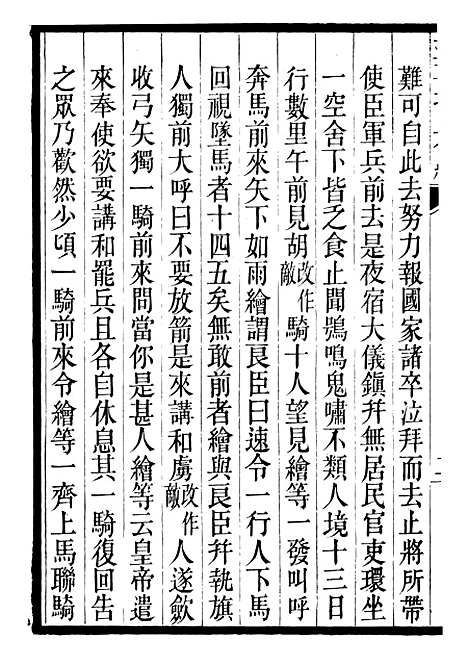 難可自此去努力報國家諸卒泣拜而去止將所帶
使臣軍兵前去是夜宿大儀鎮幷無居民官吏環坐
一空舍下皆乏食止聞鴞鳴鬼嘯不類人境十三日
行數里午前見胡改作敵騎十人望見繪等一發叫呼
奔馬前來矢下如雨繪謂良臣曰速令一行人下馬
回視墜馬者十四五矣無敢前者繪與良臣幷執旗
人獨前大呼曰不要放箭是來講和虜改作敵人遂歛
收弓矢獨一騎前來問當你是甚人繪等云皇帝遣
來奉使欲要講和罷兵且各自休息其一騎復回告
之眾乃歡然少頃一騎前來令繪等一齊上馬聯騎